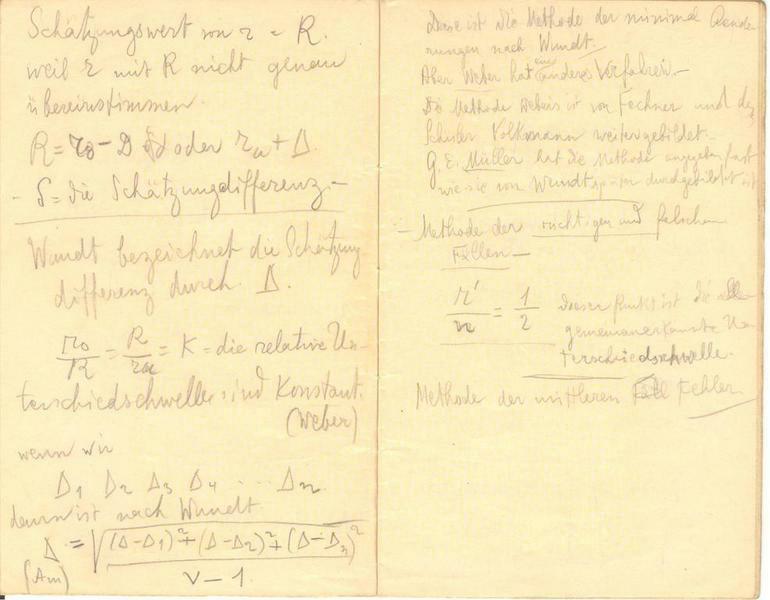 Schätzungswert von r = R.
weil r mit R nicht genau
übereinstimmen.
R = r₀ - D oder rᵤ + Δ.
- S = die Schätzungdifferenz -
Wundt bezeichnet die Schätzung
differenz durch Δ.
r₀/R = R/rᵤ = K = die relative Un-
terschiedschwelle sind Konstant.
(Weber)
wenn wir
Δ1 Δ2 Δ3 Δ4 ... Δn
dann ist nach Wundt
Δ = √((Δ-Δ1)² + (Δ-Δ2)² + (Δ-Δ3)²
(Am)
ν - 1.
Diese ist die Methode der minimal Aende
rungen nach Wundt.
Aber Weber hat ein anderes Verfahren.-
Die Methode Webers ist von Fechner und
Schüler Volkmann weitergebildet.-
G. E. Müller hat die Methode angegeben fast
wie sie von Wundt später durchgebildet ist
- Methode der richtigen und falschen
Fällen -
r'/n = 1/2
dieser Punkt ist die alle
gemeinanerkannte Un
terschiedschwelle.
Methode der mittleren Fehler.